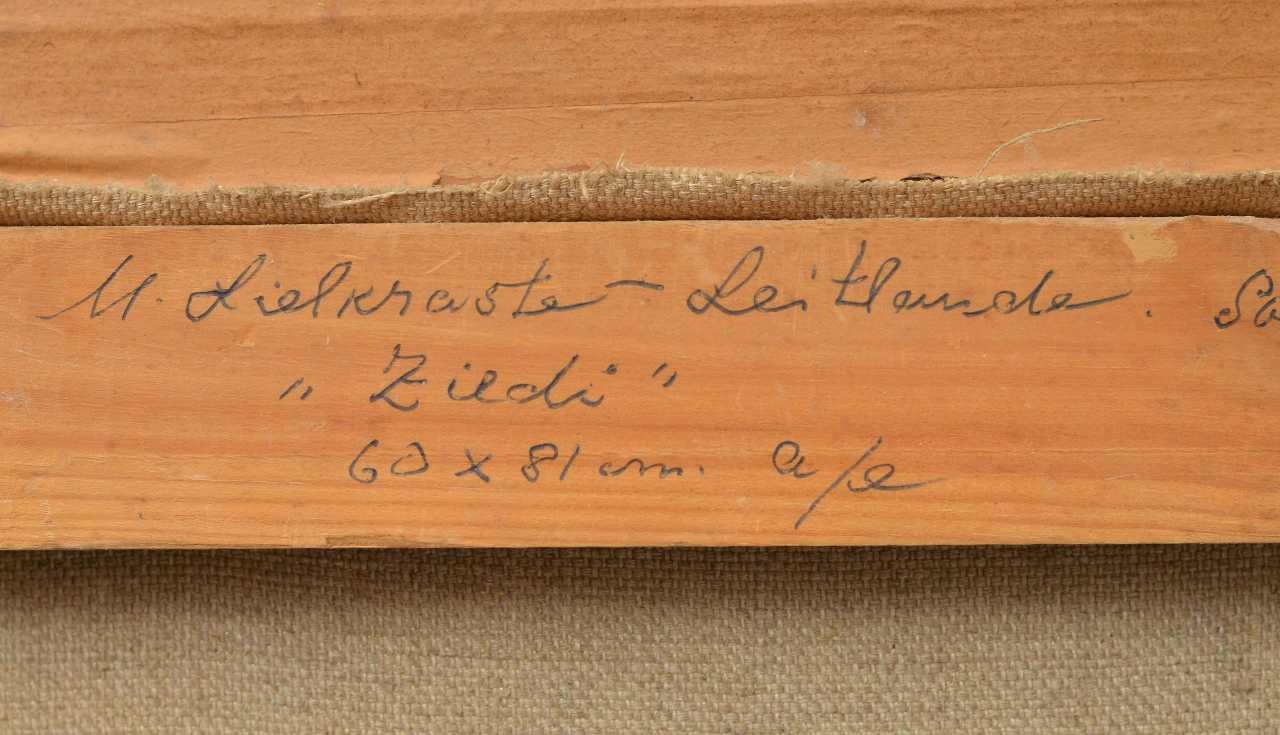 M. Lielkraste - Leitlande.
„ Ziedi "
60 x 81 cm. a/e